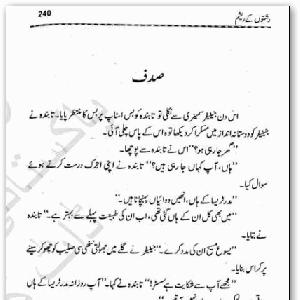 240
رشتوں کے ریشم
صدف
اس دن جینیفر سیمنری سے نکلی تو تابندہ کو بس اسٹاپ پر بس کا منتظر پایا۔ تابندہ نے
جینیفر کو دوستانہ انداز میں مسکرا کر دیکھا تو وہ اس کے پاس چلی آئی۔
"گھر جا رہی ہو؟" اس نے تابندہ سے پوچھا۔
"ہاں، آپ کہاں جا رہی ہیں؟" تابندہ نے اپنی اجرک درست کرتے ہوئے
سوال کیا۔
"مدر ٹریسا کے ہاں، انھیں دوائیاں پہنچانا ہیں۔"
"میں بھی کل ان کے ہاں گئی تھی، اب ان کی طبیعت پہلے سے بہتر ہے۔" تابندہ
نے بتایا۔
"یسوع مسیح ان کی مدد کرے۔" جینیفر نے گلے میں جھولتی ننھی سی صلیب کو چھو کر سینے
پر کراس بنایا۔
"مجھے آپ سے شکایت ہے سسٹر!" تابندہ نے کہا۔ "آپ روزانہ مدر ٹریسا کے ہاں